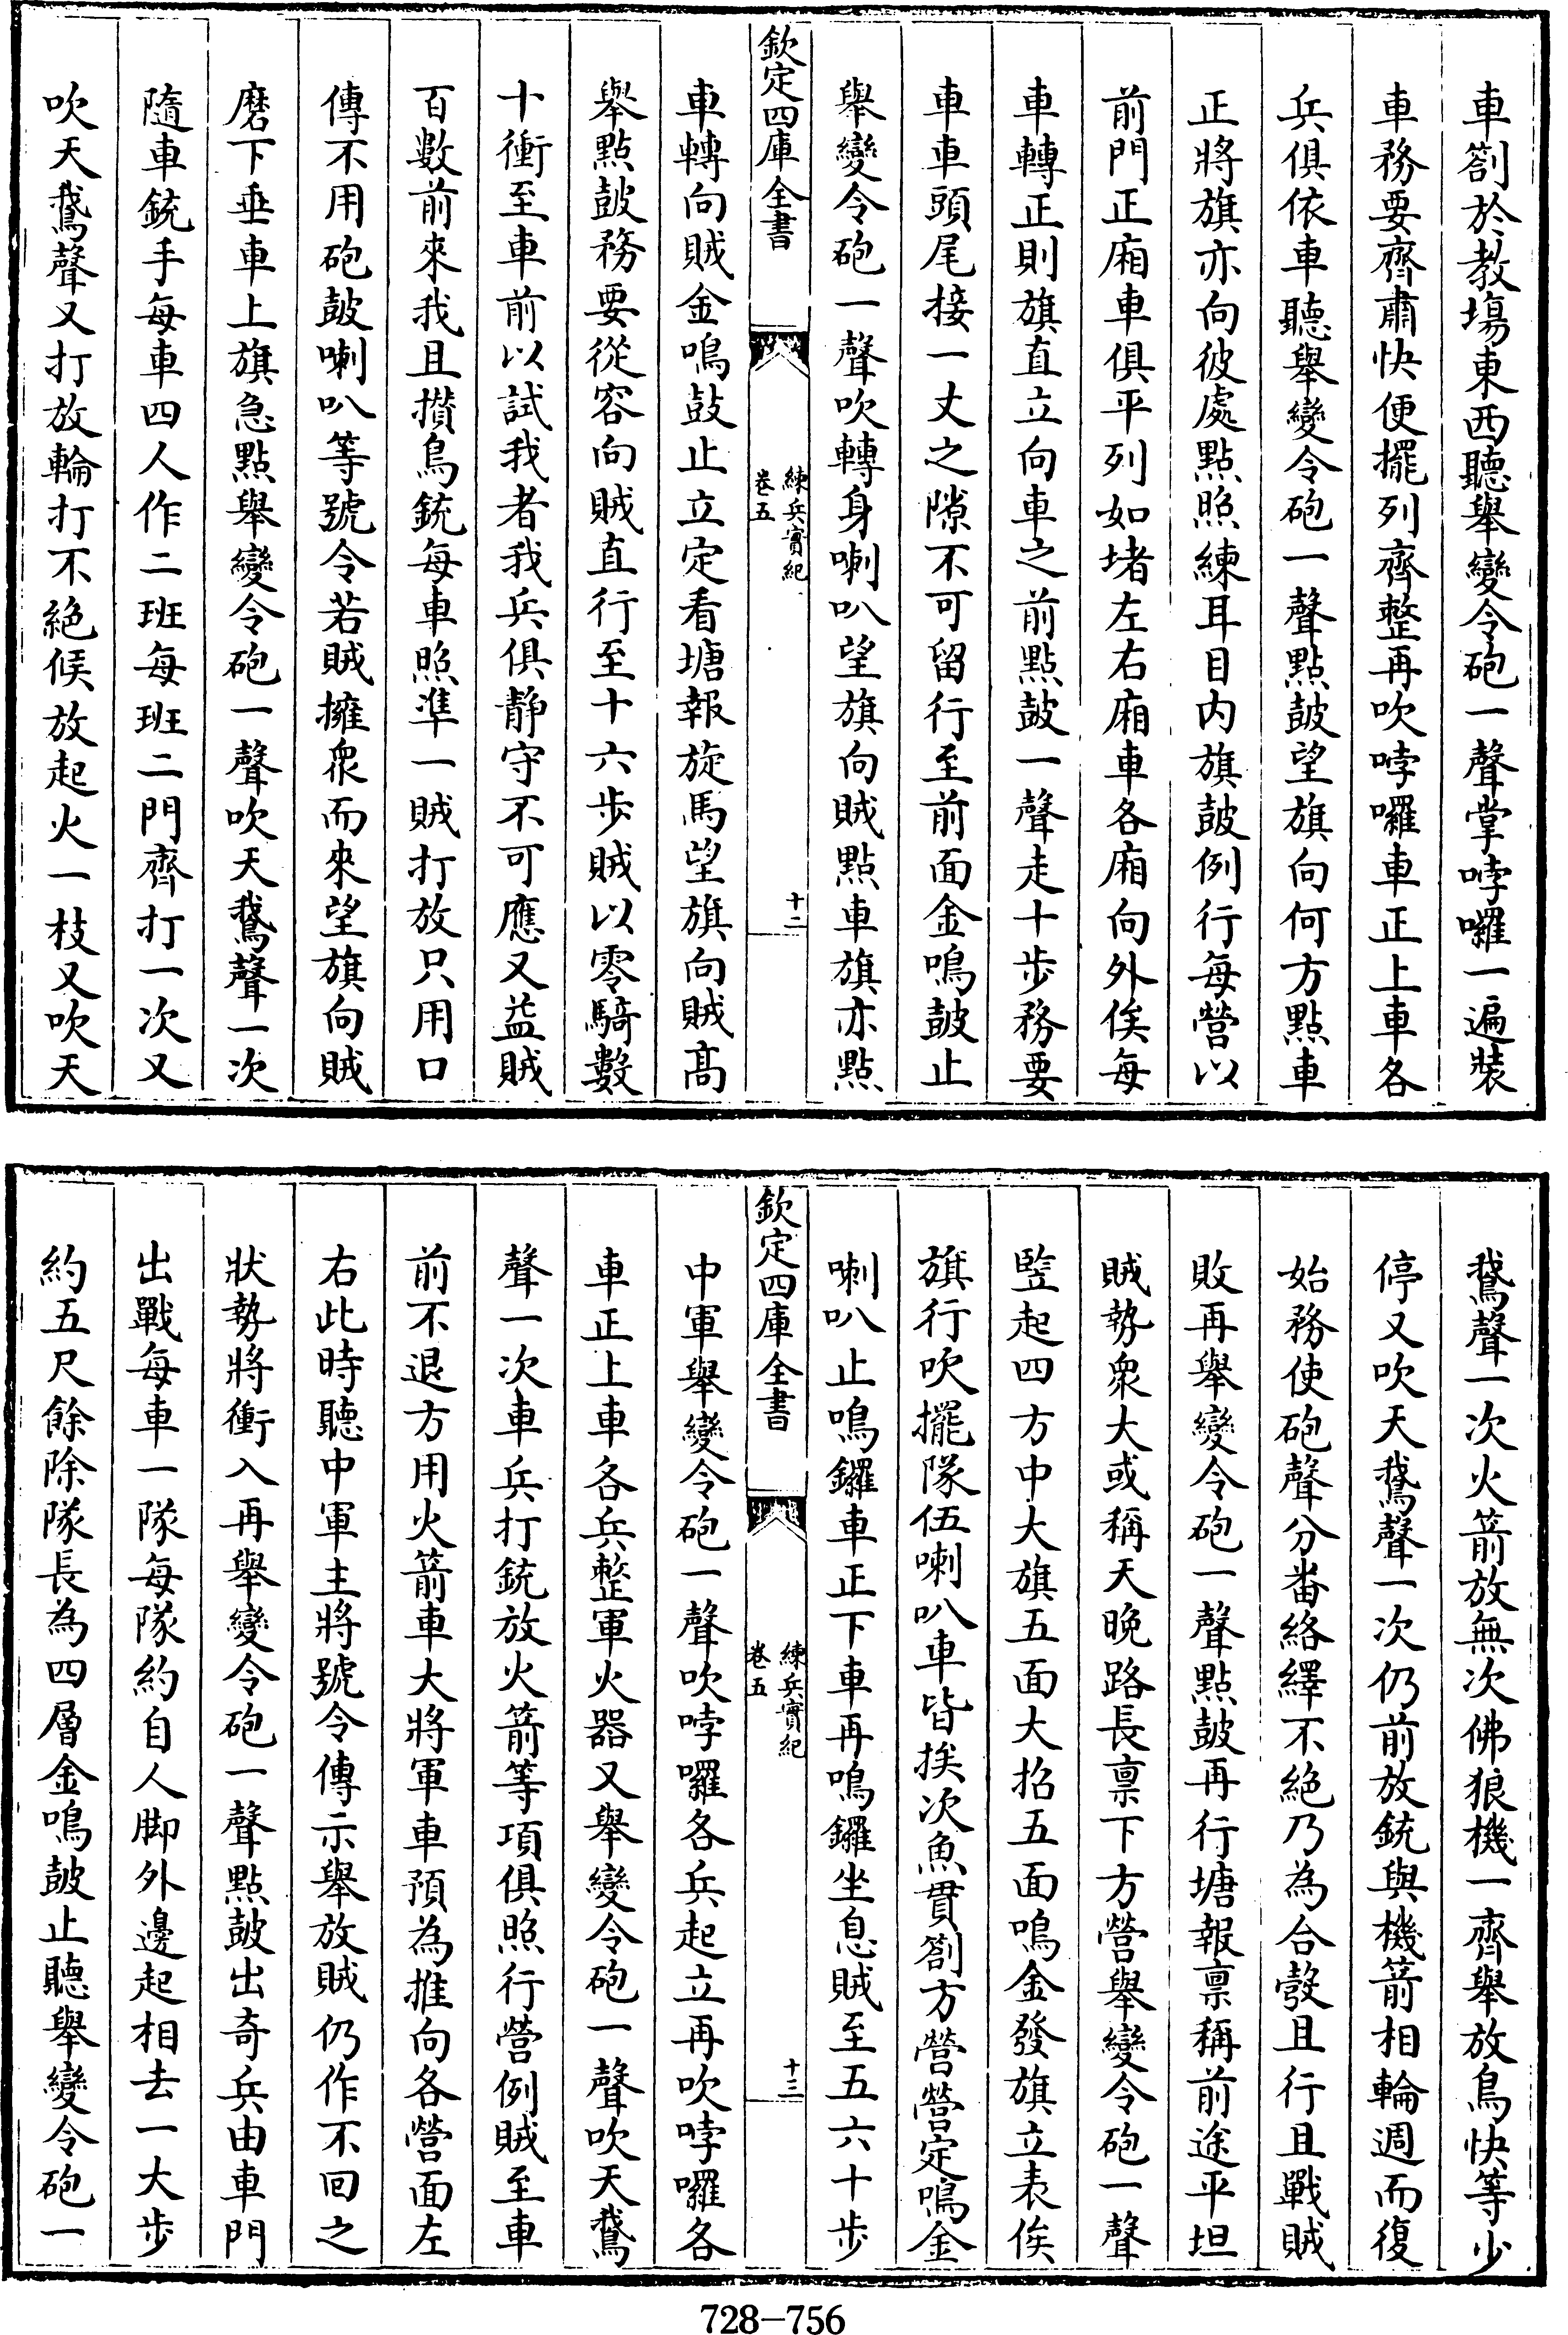 車劄於教場東西聽舉變令砲一聲掌哱囉一遍裝
車務要齊肅快便擺列齊整再吹哱囉車正上車各
兵俱依車聽舉變令砲一聲點皷望旗向何方點車
正將旗亦向彼處點照練耳目内旗皷例行每營以
前門正廂車俱平列如堵左右廂車各廂向外俟每
車轉正則旗直立向車之前點皷一聲走十步務要
車車頭尾接一丈之隙不可留行至前面金鳴皷止
舉變令砲一聲吹轉身喇叭望旗向賊點車旗亦點
欽定四庫全書
練兵實紀
卷五
十二
車轉向賊金鳴鼓止立定看塘報旋馬望旗向賊髙
舉點皷務要從容向賊直行至十六步賊以零騎數
十衝至車前以試我者我兵俱静守不可應又益賊
百數前來我且攢鳥銃每車照準一賊打放只用口
傳不用砲皷喇叭等號令若賊擁衆而來望旗向賊
磨下垂車上旗急點舉變令砲一聲吹天鵞聲一次
隨車銃手每車四人作二班每班二門齊打一次又
吹天鵞聲又打放輪打不絶候放起火一枝又吹天
鵞聲一次火箭放無次佛狼機一齊舉放鳥快等少
停又吹天鵞聲一次仍前放銃與機箭相輪週而復
始務使砲聲分畨絡繹不絶乃為合彀且行且戰賊
敗再舉變令砲一聲點皷再行塘報禀稱前途平坦
賊勢衆大或稱天晚路長禀下方營舉變令砲一聲
竪起四方中大旗五面大招五面鳴金發旗立表俟
旗行吹擺隊伍喇叭車皆挨次魚貫劄方營營定鳴金
喇叭止鳴鑼車正下車再鳴鑼坐息賊至五六十步
欽定四庫全書
練兵實紀
卷五
十三
中軍舉變令砲一聲吹哱囉各兵起立再吹哱囉各
車正上車各兵整軍火器又舉變令砲一聲吹天鵞
聲一次車兵打銃放火箭等項俱照行營例賊至車
前不退方用火箭車大將軍車預為推向各營面左
右此時聽中軍主將號令傳示舉放賊仍作不回之
狀勢將衝入再舉變令砲一聲點皷出奇兵由車門
出戰每車一隊每隊約自人脚外邊起相去一大步
約五尺餘除隊長為四層金鳴皷止聽舉變令砲一
728-756